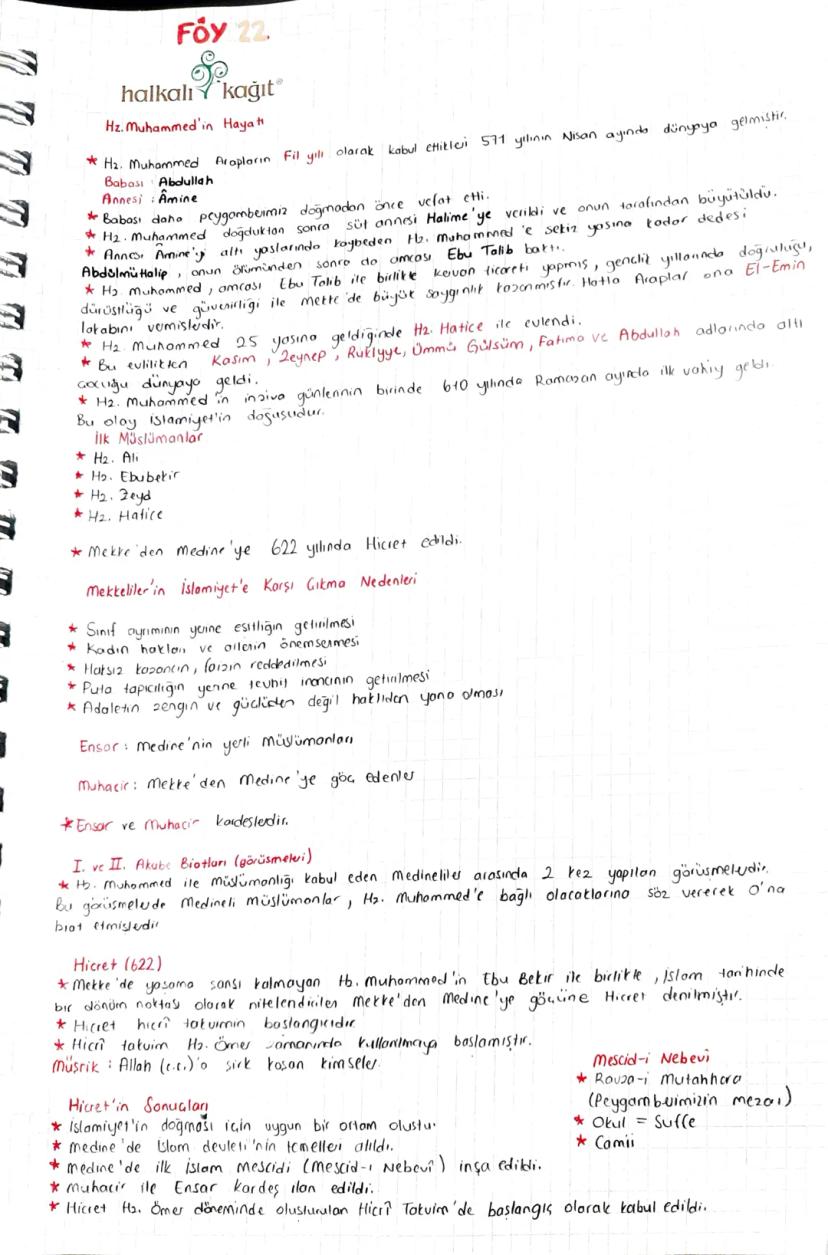 FÖY 22.
halkalı kağıt®
Hz. Muhammed'in Hayatı
* Hz. Muhammed Arapların Fil yılı olarak kabul ettikleri 571 yılının Nisan ayında dünyaya gelmiştir.
Babası : Abdullah
Annesi : Âmine
* Babası daha peygamberimiz doğmadan önce vefat etti.
* Hz. Muhammed doğduktan sonra süt annesi Halime'ye verildi ve onun tarafından büyütüldü.
* Annesi Âmine'yi altı yaşlarında kaybeden Hz. Muhammed'e sekiz yaşına kadar dedesi
Abdülmuttalip, onun ölümünden sonra da amcası Ebu Talib baktı.
* Hz. Muhammed, amcası Ebu Talib ile birlikte kervan ticareti yapmış, gençlik yıllarında doğruluğu,
dürüstlüğü ve güvenirliği ile Mekke'de büyük saygınlık kazanmıştır. Hatta Araplar ona El-Emin
lakabını vermişlerdir.
* Hz. Muhammed 25 yaşına geldiğinde Hz. Hatice ile evlendi.
* Bu evlilikten Kasım, Zeynep, Rukiyye, Ümmü Gülsüm, Fatıma ve Abdullah adlarında altı
çocuğu dünyaya geldi.
* Hz. Muhammed'in inziva günlerinin birinde 610 yılında Ramazan ayında ilk vahiy geldi.
Bu olay İslamiyet'in doğuşudur.
İlk Müslümanlar
* Hz. Ali
* Hz. Ebubekir
* Hz. Zeyd
* Hz. Hatice
* Mekke'den Medine'ye 622 yılında Hicret edildi.
Mekkeliler'in İslamiyet'e Karşı Çıkma Nedenleri
* Sınıf ayrımının yerine eşitliğin getirilmesi
* Kadın hakları ve ailenin önemsenmesi
* Haksız kazancın, faizin reddedilmesi
* Puta tapıcılığın yerine tevhit inancının getirilmesi
* Adaletin zengin ve güçlüden değil haklıdan yana olması
Ensar : Medine'nin yerli Müslümanları
Muhacir : Mekke'den Medine'ye göç edenler
* Ensar ve Muhacir kardeşlerdir.
I. ve II. Akabe Biatları (görüşmeleri)
* Hz. Muhammed ile Müslümanlığı kabul eden Medineliler arasında 2 kez yapılan görüşmelerdir.
Bu görüşmelerde Medineli Müslümanlar, Hz. Muhammed'e bağlı olacaklarına söz vererek O'na
biat etmişlerdir
Hicret (622)
* Mekke'de yaşama şansı kalmayan Hz. Muhammed'in Ebu Bekir ile birlikte, İslam tarihinde
bir dönüm noktası olarak nitelendirilen Mekke'den Medine'ye göçüne Hicret denilmiştir.
* Hicret hicrî takvimin başlangıcıdır
* Hicrî takvim Hz. Ömer zamanında kullanılmaya başlamıştır.
Müşrik : Allah (c.c.)'a şirk koşan kimseler
Mescid-i Nebevî
* Ravza-i Mutahhara
(Peygamberimizin mezarı)
* Okul = Suffe
* Camii
Hicret'in Sonuçları
* İslamiyet'in doğması için uygun bir ortam oluştu.
* Medine'de İslam devleti'nin temelleri atıldı.
* Medine'de ilk İslam Mescidi (Mescid-i Nebevî) inşa edildi.
* Muhacir ile Ensar kardeş ilan edildi.
* Hicret Hz. Ömer döneminde oluşturulan Hicrî Takvim'de başlangıç olarak kabul edildi.